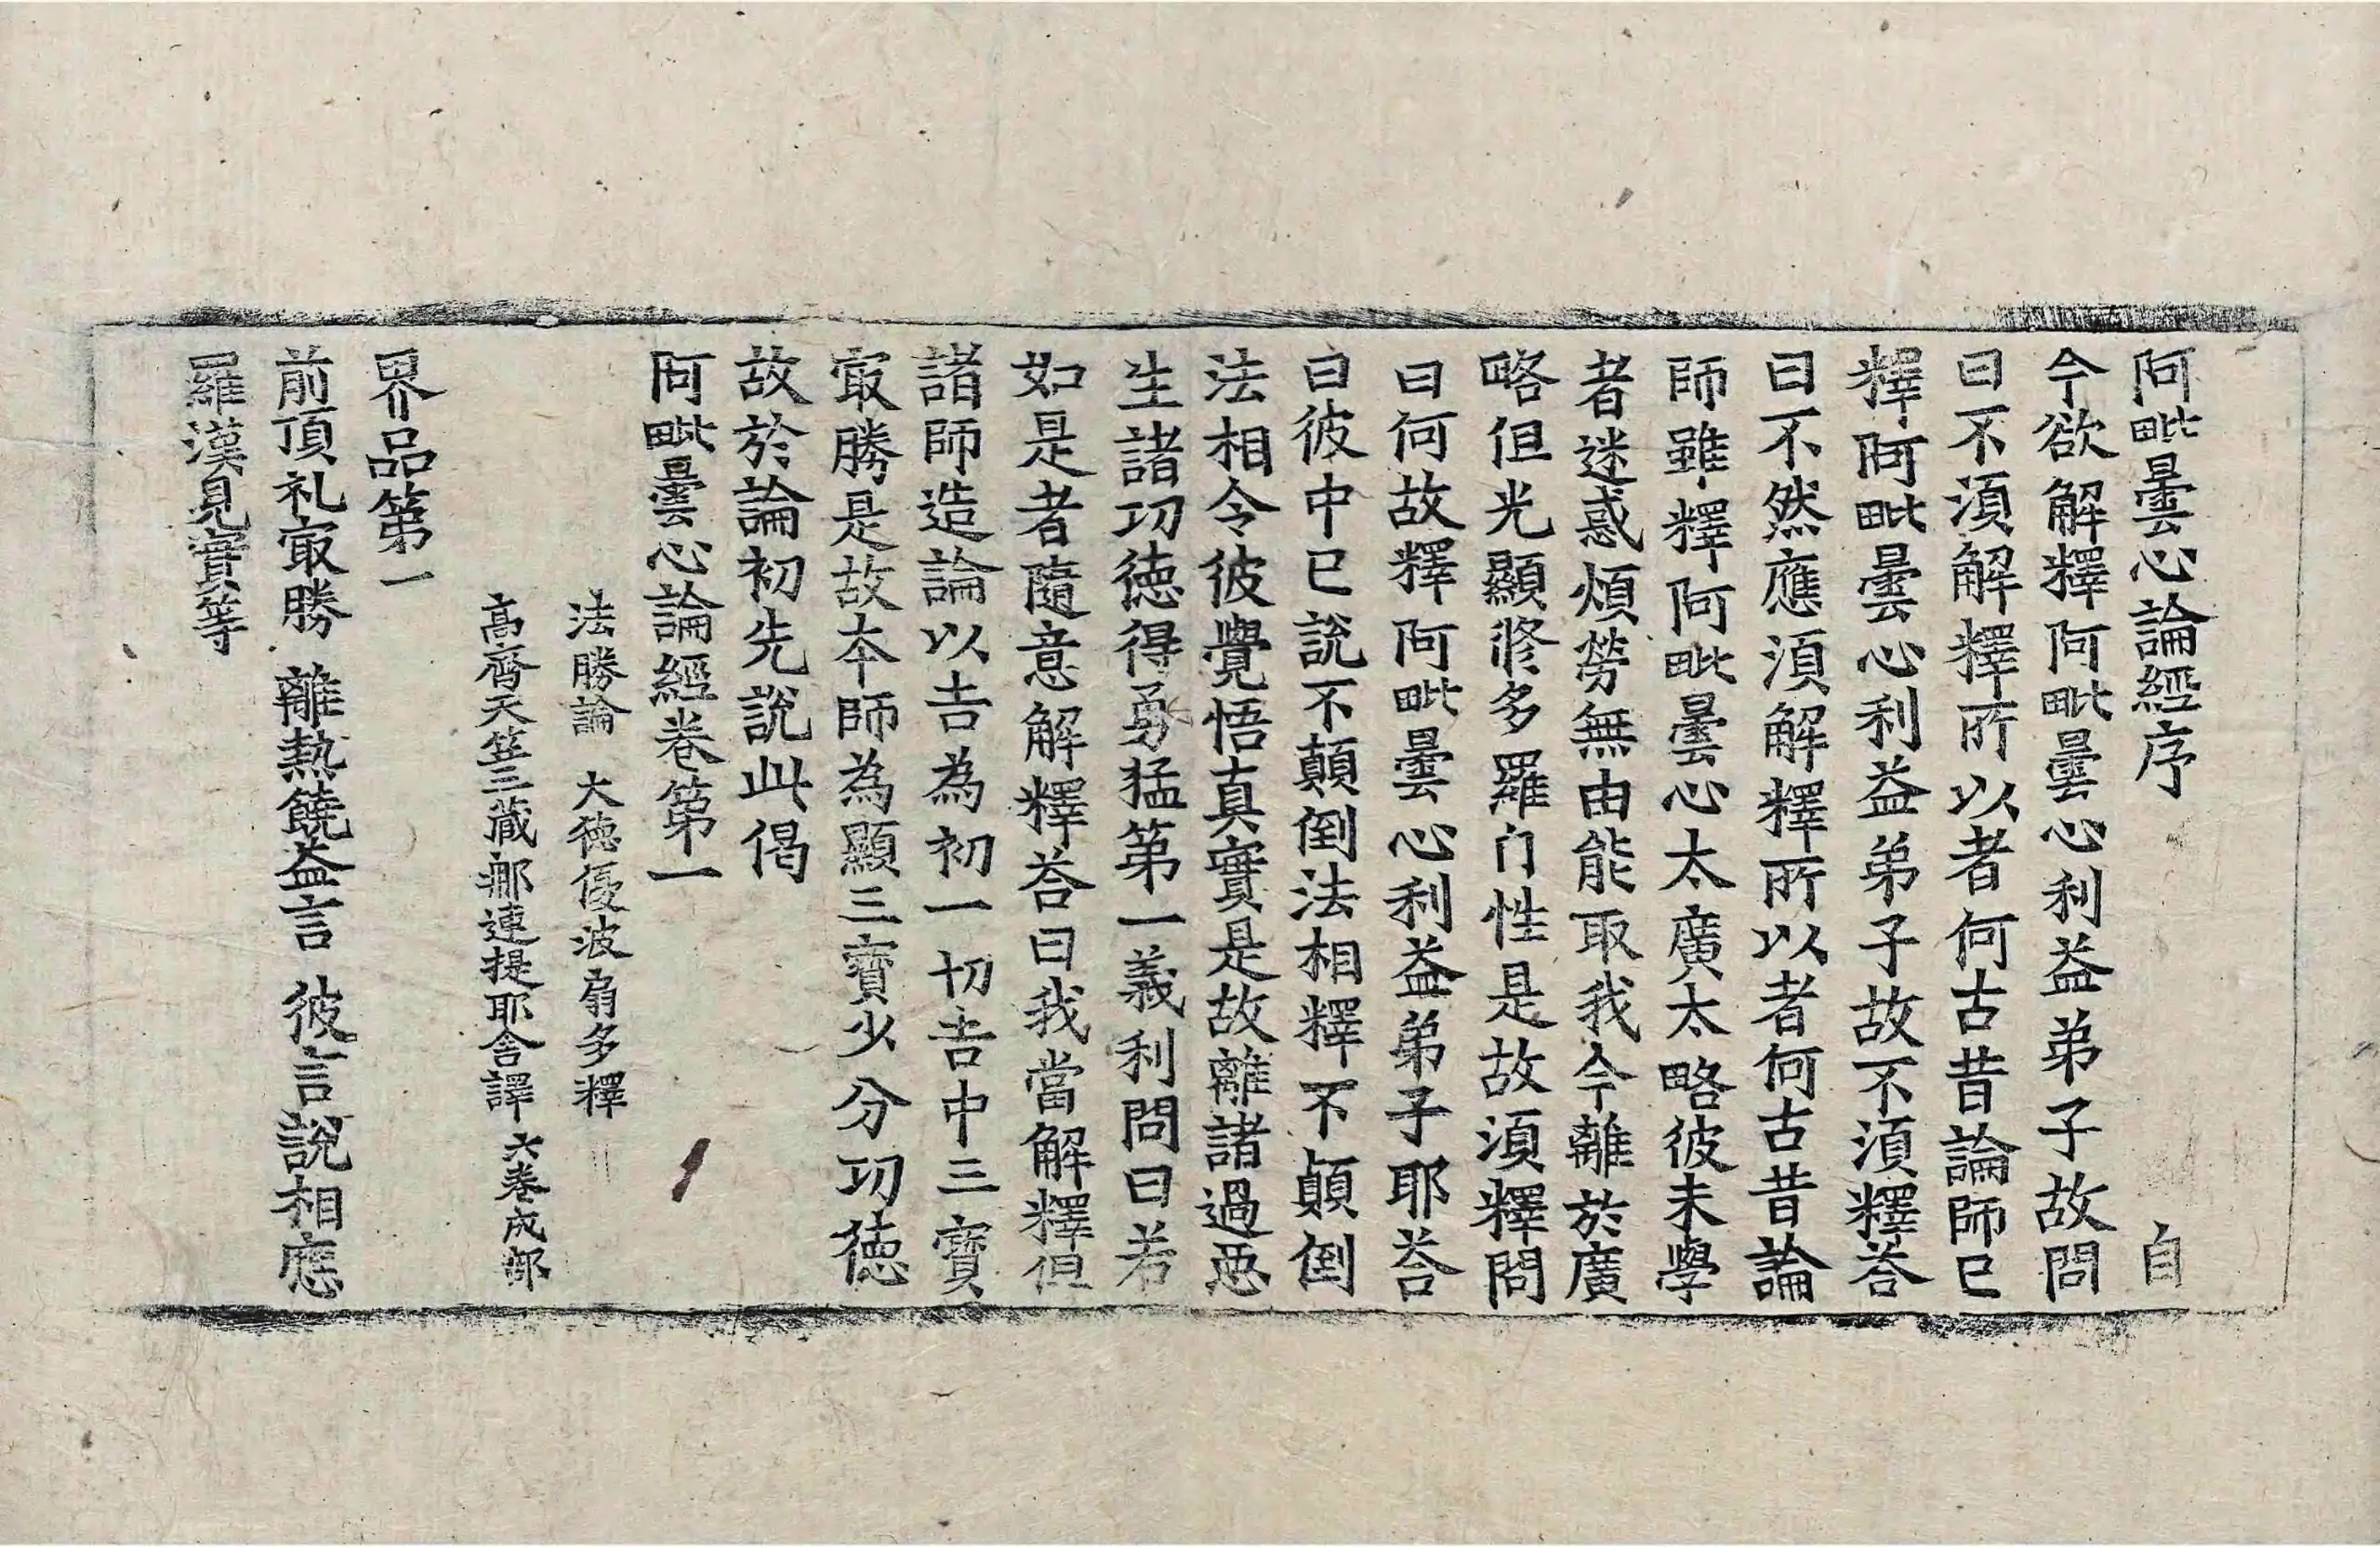 阿毗曇心論經序 自
今欲解釋阿毗曇心利益弟子故問
曰不湏解釋所以者何古昔論師已
釋阿毗曇心利益弟子故不湏釋荅
曰不然應湏解釋所以者何古昔論
師雖釋阿毗曇心太廣太略彼未學
者迷惑煩勞無由能取我今離於廣
略但光顯修多羅门性是故湏釋問
曰何故釋阿毗曇心利益弟子耶荅
曰彼中已說不顛倒法相釋不顛倒
法相令彼覺悟真實是故離諸過惡
生諸功德得勇猛第一義利問曰若
如是者隨意解釋荅曰我當解釋但
諸師造論以吉為初一切吉中三寶
冣勝是故本師為顯三寶少分功德
故於論初先說此偈
阿毗曇心論經卷第一
法勝論 大德優波扇多釋
高齊天竺三藏郍連提耶舍譯 六卷成部
界品第一
前頂礼冣勝 離熱饒益言 彼言說相應
羅漢見實等